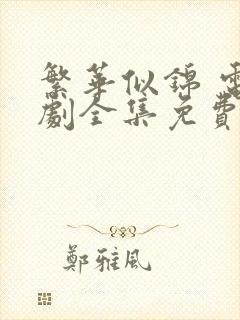 繁華似錦 電
劇全集免費
鄭雅風